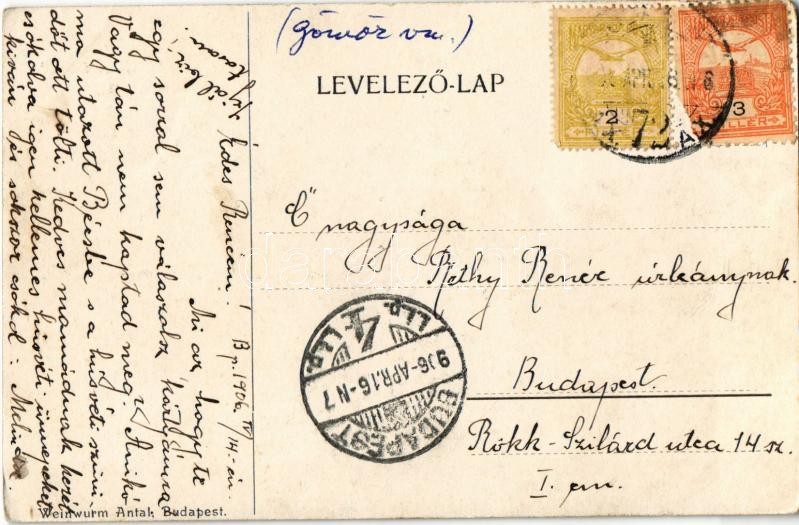 (Gömör vm.)
LEVELEZŐ-LAP
2
3
72
Ő nagysága
Róthy Renée úrleánynak.
Budapest.
Rökk-Szilárd utca 14 sz.
I. em.
BUDAPEST
906-APR.16-N7
4
Bp. 1906 IV/14-én.
Édes Renéem!
Mi az, hogy te
egy sorral sem válaszolsz kártyámra
Vagy tán nem kaptad meg? Anikó
ma utazott Bécsbe s a húsvéti szüni-
dőt ott tölti. Kedves mamádnak kezét
csókolva igen kellemes húsvéti ünnepeket
kíván és sokszor csókol:
Weinwurm Antal, Budapest.